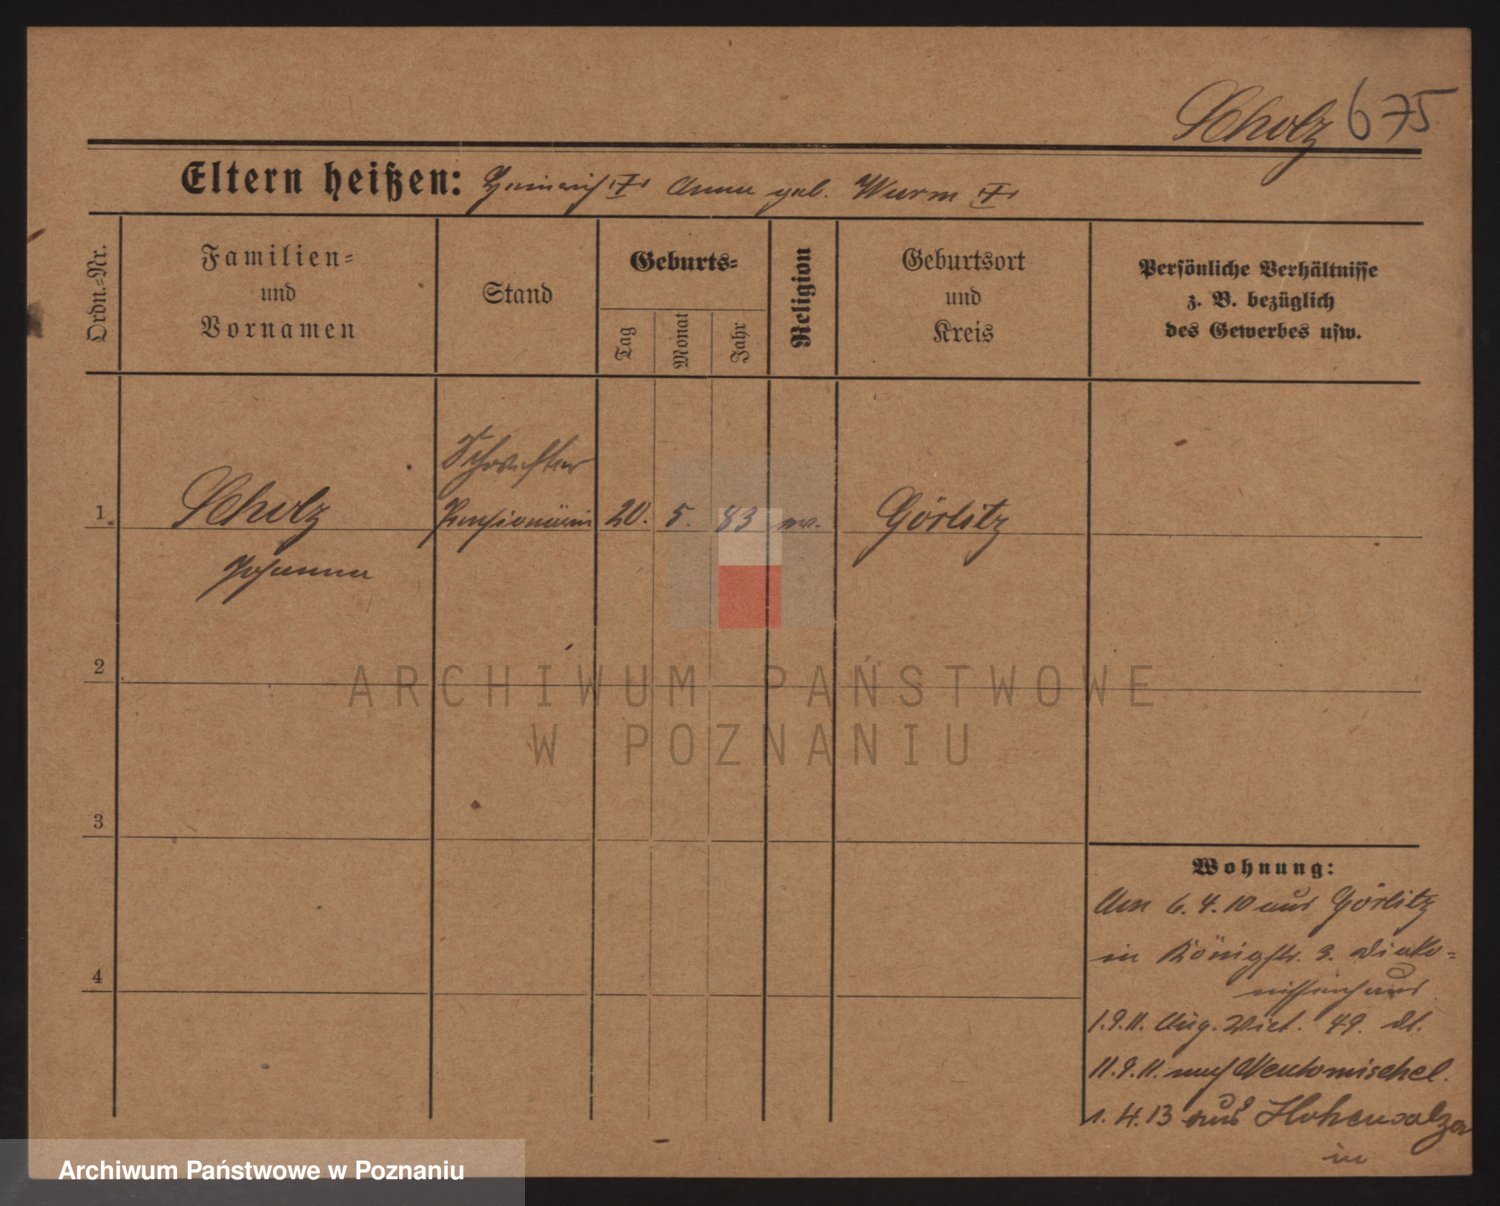 Scholz 675
Eltern heißen: Heinrich Anna geb. Wurm
Ordn.-Nr.
Familien-
und
Vornamen
Stand
Geburts-
Tag
Monat
Jahr
Religion
Geburtsort
und
Kreis
Persönliche Verhältnisse
z. B. bezüglich
des Gewerbes usw.
Schwester
1 Scholz Pensionärin 20. 5. 83 ev. Görlitz
Johanna
2
3
4
Wohnung:
Am 6.4.10 aus Görlitz
in Königstr. 3. Diako-
nissenhaus
1.9.11. Aug. Vict. 49. dt.
11.9.11. nach Neutomischel.
1.4.13 aus Hohensalza
in
ARCHIWUM PAŃSTWOWE
W POZNANIU
Archiwum Państwowe w Poznaniu